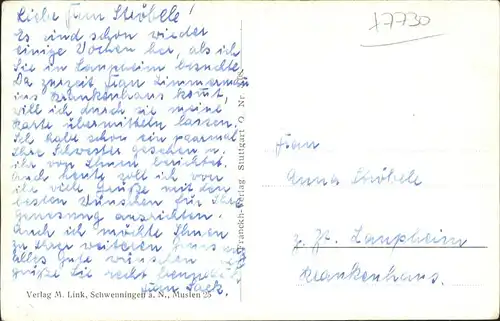 Liebe Frau Ströbele!
Es sind schon wieder
einige Wochen her, als ich
Sie in Laupheim besuchte.
Da zurzeit Frau Zimmermann
ins Krankenhaus kommt,
will ich durch sie meine
Karte übermitteln lassen.
Ich habe schon ein paarmal
Ihre Schwester gesehen u.
ihr von Ihnen berichtet.
Auch heute soll ich von
ihr viele Grüße mit den
besten Wünschen für Ihre
Genesung ausrichten.
Auch ich möchte Ihnen
zu Ihrer weiteren
alles Gute wünschen
grüße Sie recht herzlich
Verlag M. Link, Schwenningen a. N., Muslen 25
Franckh-Verlag Stuttgart O Nr.
17730
Frau
Anna Ströbele
z. Zt. Laupheim
Krankenhaus.